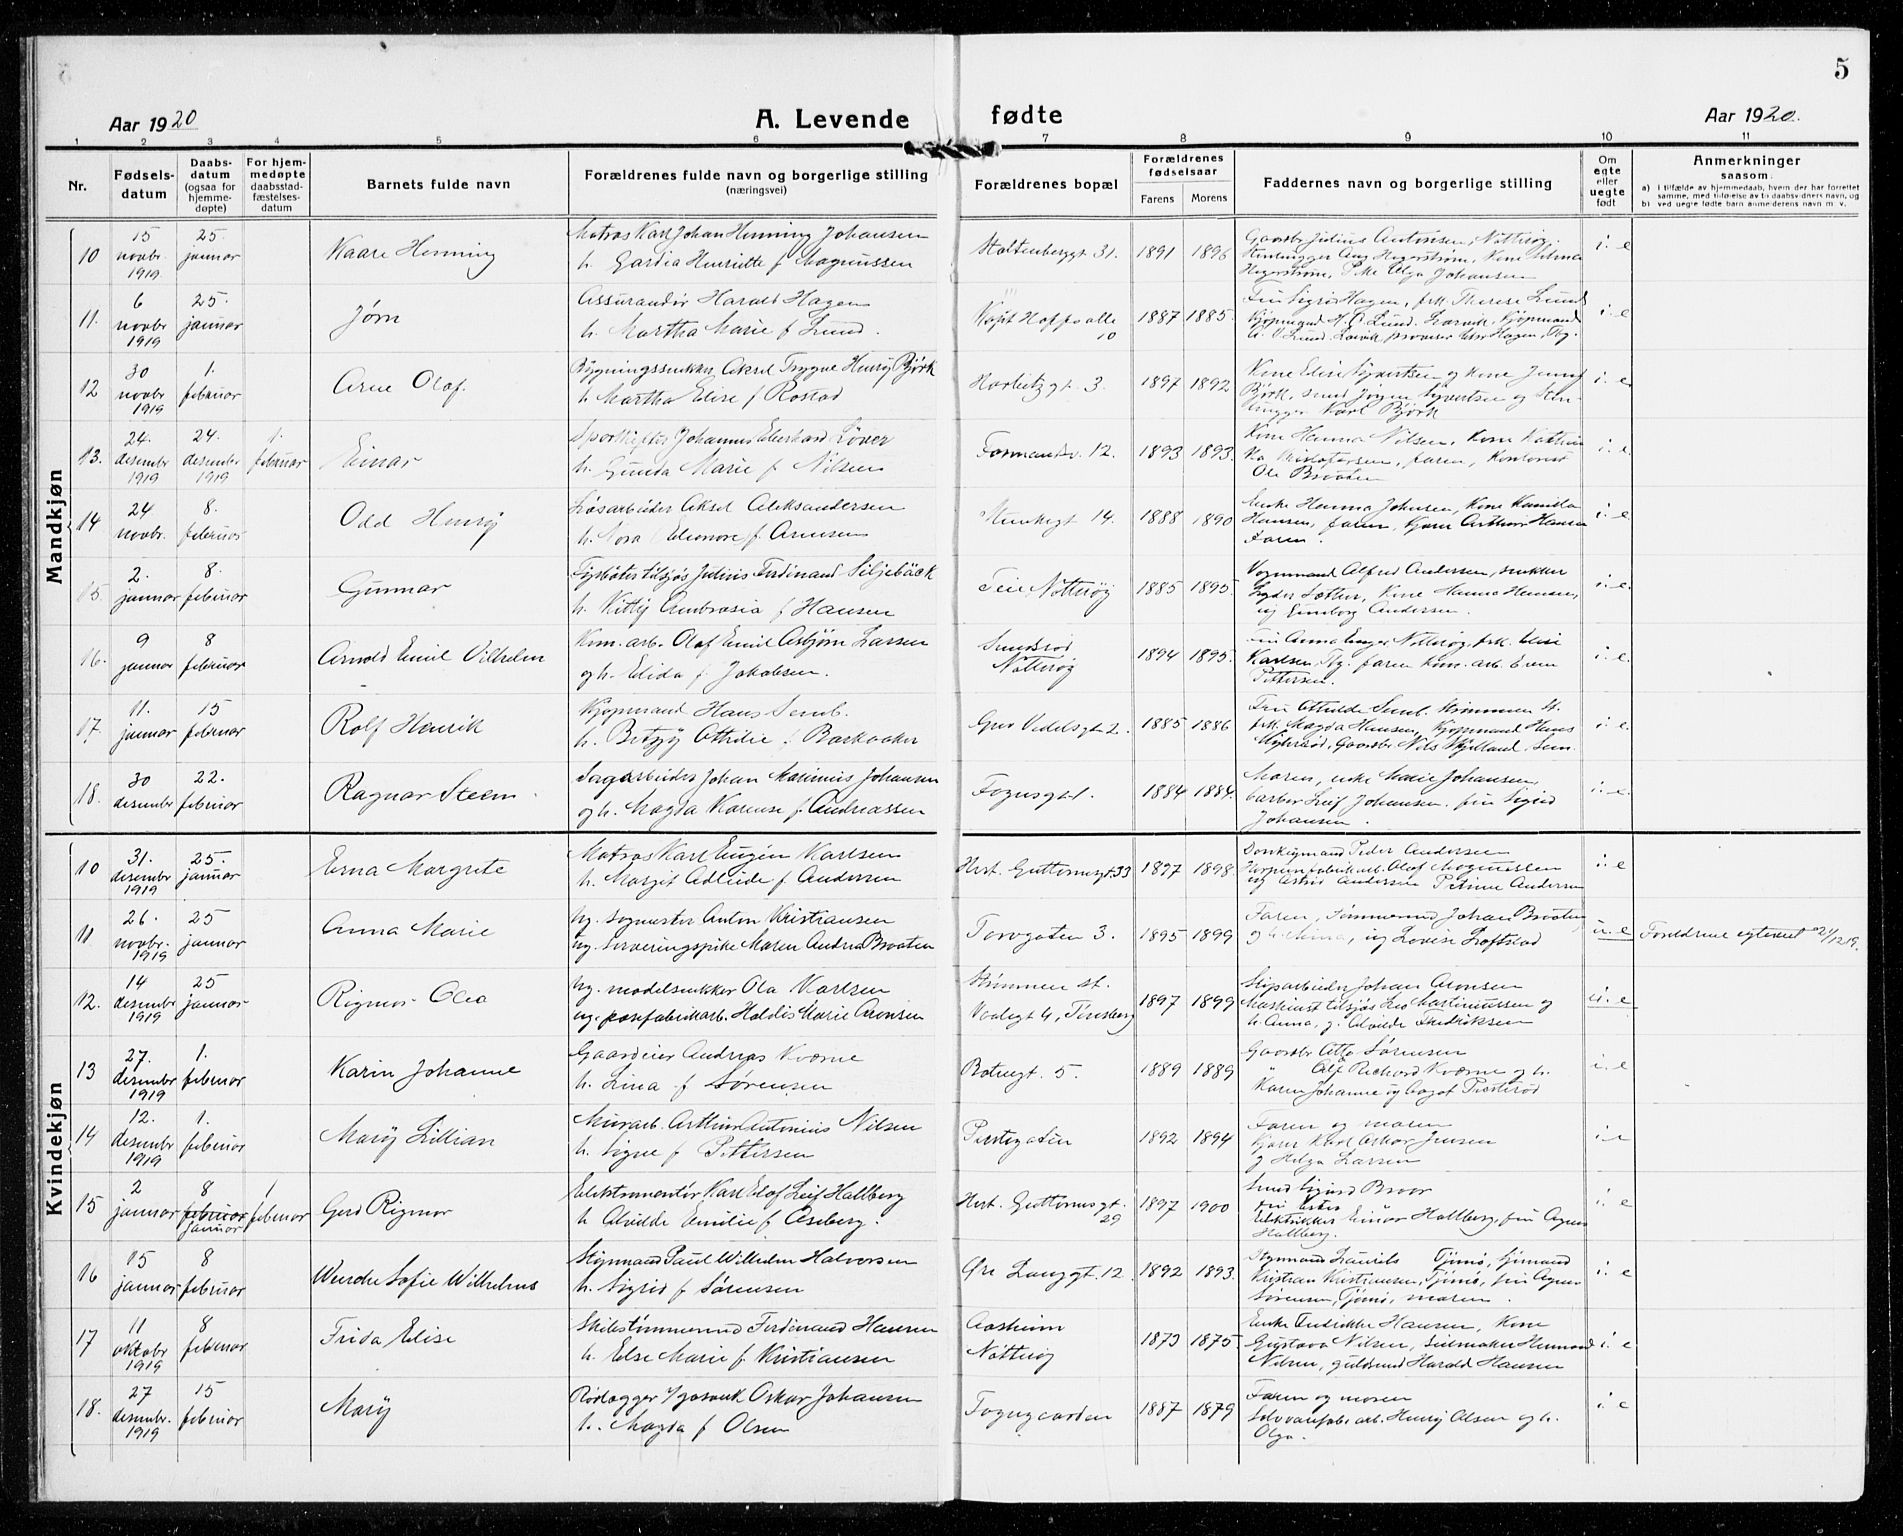 5
Aar 1920
A. Levende fødte
Aar 1920.
1 2 3 4 5 6 7 8 9 10 11
Nr.
Fødselsdatum
Daabsdatum (ogsaa for hjemmedøpte)
For hjemmedøpte daabsstadfæstelsesdatum
Barnets fulde navn
Forældrenes fulde navn og borgerlige stilling
(næringsvei)
Forældrenes bopæl
Forældrenes fødselsaar
Farens Morens
Faddernes navn og borgerlige stilling
Om egte eller uegte født
Anmerkninger
saasom:
a) i tilfælde av hjemmedaab, hvem der har forrettet samme, med tilføielse av to daabsvidners navn, og
b) ved uegte fødte barn anmelderens navn m. v.
Mandkjøn
10 15 novbr. 1919 25. januar Kaare Henning
Matros Karl Johan Henning Johansen
h. Gardia Henriette f Magnussen
Stoltenberggt 31. 1891 1896
Gaardbr Julius Antonsen, Nøtterøy,
Hegerstrøm, Pike Olga Johansen
i. e
11. 6 novbr 1919 25. januar Jørn
Assurandør Harald Hagen
h. Martha Marie f Lund.
Kapt Hoffs alle 10 1887 1885.
Fru Sigrid Hagen, frk. Therese Lund
Kjøpmand H. P. Lund. Larvik, Kjøpmand
i. e
12 30 novbr 1919 1. februar Arne Olaf.
Bygningssnekker Aksel Trygve Henry Bjørk
h. Martha Elise f Rostad
Harbitzgt 3. 1897 1892
Kone Elise Syvertsen og Kone Jenny
Bjørk, smed Jørgen Syvertsen og Sten-
hugger Karl Bjørk
i. e
13. 24. desembr 1919 24. desembr 1919 1. februar Einar
Johannes Eberhard Løver
h. Gunda Marie f Nilsen
Farmandsv. 12. 1893 1893.
Kone Hanna Nilsen, Kone Kathrin
ka Kristofersen, faren, Kontorist
Ole Braaten
i. e
14 24 novbr. 8. februar Odd Henry
Løsarbeider Aksel Aleksandersen
h. Nora Eleonore f. Arnesen
Munkegt 14. 1888 1890
Enke Hanna Johnsen, Kone Kamilla
Hansen, faren, Kjører Arthur Hansen
Faren.
i. e
15. 2. januar 8. februar Gunnar
Fyrbøter tilsjøs Julius Ferdinand Siljebäck
h. Kitty Ambrosia f Hansen
Teie Nøtterøy 1885 1895.
Vognmand Alfred Andersen, snekker
Lyder Sæther, Kone Hanna Hansen,
ug Andersen.
i. e.
16. 9 januar 8 februar Arnold Emil Vilhelm
Kom. arb. Olaf Emil Asbjørn Larsen
og h. Elida f Jakobsen.
Smidsrød Nøtterøy 1894 1895.
Fru Anna Enger Nøtterøy, frk. Elise
Karlsen, Tbg. faren Kom. arb. Even
Pettersen.
i. e.
17. 11. januar 15 februar Rolf Henrik
Kjøpmand Hans Semb.
h. Birgy Othilie f Barkaaker
Grev Wedelsgt 2. 1885 1886
Fru Othilde Semb. Kimmen St.
frk. Magda Hansen, Kjøpmand Hans
Gaardbr Nils Kjelland, Sem
i. e
18. 30 desember 22. februar Ragnar Steen.
Sagarbeider Johan Marinius Johansen
og h. Magda Karense f. Andreassen
Fagnsgt. 1884 1884.
Moren, enke Marie Johansen,
barber Leif Johansen. fru Sigrid
Johansen.
i. e.
Kvindekjøn
10 31. desember 1919 25. januar Erna Margrete
Matros Karl Eugen Karlsen
h. Margit Adleide f. Andersen
Hert. Guttormsgt. 33 1897 1898.
Donkeymand Peder Andersen
Olaf Magnussen
ug Astrid Andersen Petrine Andersen
i. e
11 26. novbr. 1919 25 januar Anna Marie
Ug. Anton Kristiansen
Ug. Serveringspike Maren Andrea Braaten
Torvgaten 3. 1895 1899
Faren, Tømmermd Johan Braaten
og h. Mina, ug Lovise Loftstad
u. e
Foreldrene egteviet 21/12 19.
12. 14 desembr 1919 25 januar Rigmor Olea
Ug. modelsnekker Ola Karlsen
ug. posefabrikarb. Haldis Marie Aronsen
Kimmen st.
Vaaligt 4, Tønsberg 1897 1899
Slipsarbeider Johan Aronsen
Maskinist tilsjøs Leo Martiniussen og
h. Anna, g. Alvilde Fredriksen
u. e
13 27. desembr 1919 1. februar Karin Johanne
Gaardeier Andreas Kværne
h. Lina f Sørensen
Botnegt. 5. 1889 1889
Gaardbr Otto Sørensen
" Alf Richard Kværne og h.
Karen Johanne ug Aagot Prestrød
i. e
14 12. desembr 1919 1. februar Mary Lillian
Murarb. Arthur Antonius Nilsen
h. Signe f Pettersen
Prestegaten 1892 1894
Faren og moren
Kjører Karl Oskar Jensen
g Helga Larsen
i. e
15 2 januar 8 februar januar 1 februar Gerd Rigmor
Elektromontør Karl Olof Leif Hallberg
h Alvilde Emilie f Aseberg.
Hert. Guttormsgt. 29 1897 1900
Smed Sigurd Broer
Elektriker Einar Hallberg, fru Agnes
Hallberg.
i. e
16 15 januar 8 februar Wenche Sofie Wilhelms
Styrmand Paul Wilhelm Halvorsen
h. Sigrid f Sørensen
Øvre Langgt 12 1892 1893.
Styrmand Laurits Tjømø, sjømand
Kristian Kristiansen, Tjømø, fru Agnes
Sørensen, Tjømø, moren.
i. e
17 11 oktobr 1919 8 februar Frida Elise
Skibstømmermd Ferdinand Hansen
h. Else Marie f. Kristiansen
Aasheim Nøtterøy 1873 1875.
Enke Fredrikke Hansen, Kone
Gustava Nilsen, Seilmaker Hermand
Nilsen, guldsmed Harald Hansen
i. e
18. 27 desembr. 1919 15 februar Mary
Rørlægger v/gasverk Oskar Johansen
h. Magda f Olsen
Fogngaarden 1887 1879
Faren og moren
arb. Henry Olsen og h.
Olga.
i. e